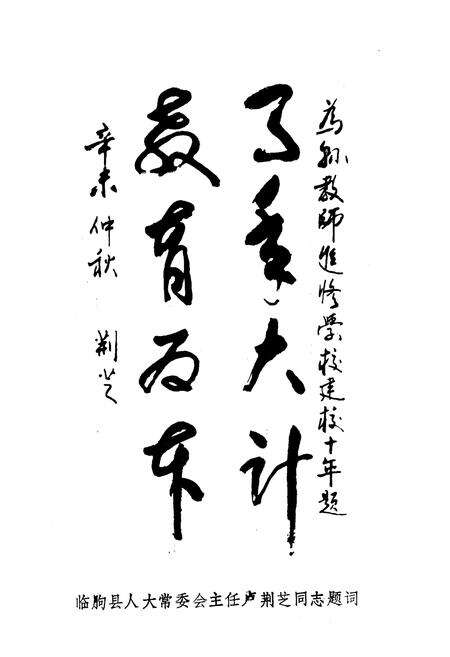 为縣教師進修學校建校十年題
百年大计
教育为本
辛未仲秋 荆芝
临朐县人大常委会主任卢荆芝同志题词